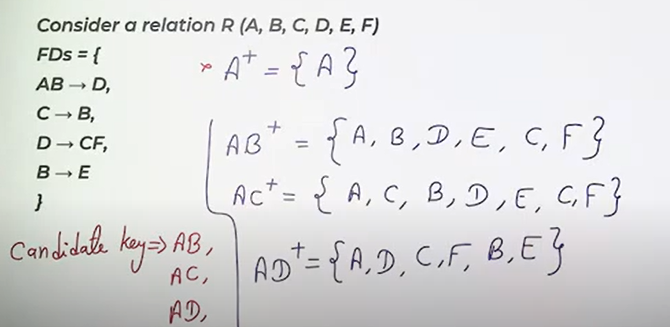 Consider a relation R (A, B, C, D, E, F)
FDs = {
AB → D,
C → B,
D → CF,
B → E
}
× A⁺ = {A}
AB⁺ = {A, B, D, E, C, F}
AC⁺ = {A, C, B, D, E, C, F}
AD⁺ = {A, D, C, F, B, E}
Candidate key ⇒ AB,
AC,
AD,